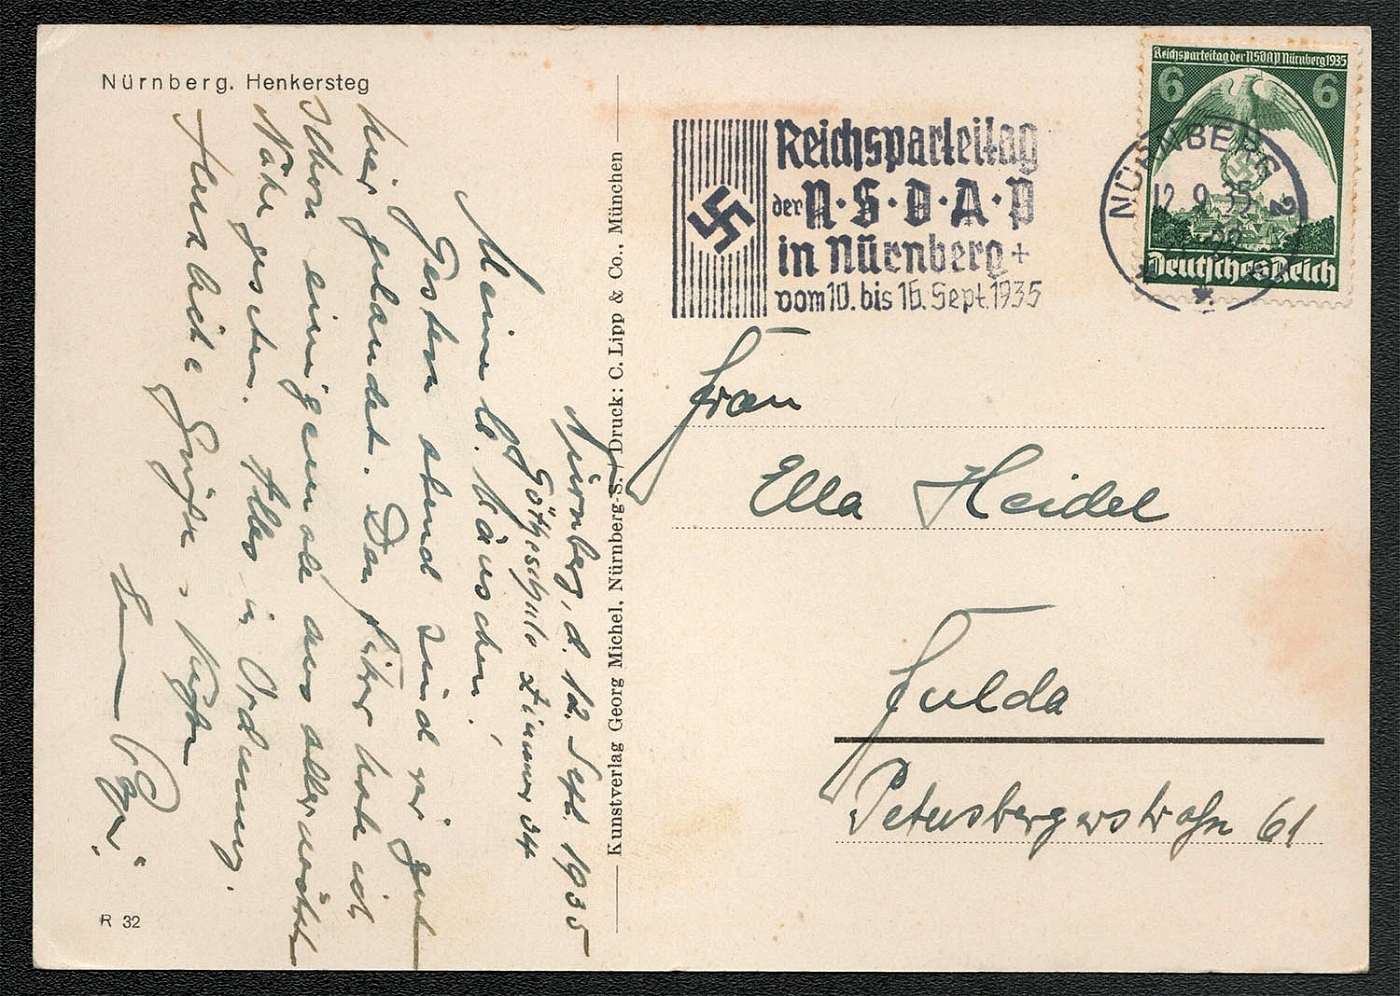 Nürnberg. Henkersteg
Nürnberg, d. 12. Sept. 1935
Götheschule Zimmer 34
Meine lb. Mäuschen!
Gestern abend sind wir gut
hier gelandet. Den Führer habe ich
schon einigemale aus allernächster
Nähe gesehen. Alles in Ordnung.
Herzliche Grüße u. Küsse
R 32
Kunstverlag Georg Michel, Nürnberg-S. / Druck: C. Lipp & Co., München
Reichsparteitag
der N·S·D·A·P
in Nürnberg +
vom 10. bis 16. Sept. 1935
Reichsparteitag der NSDAP Nürnberg 1935
6 6
Deutsches Reich
NÜRNBERG 2
12.9.35
Frau
Ella Heidel
Fulda
Petersbergerstraße 61